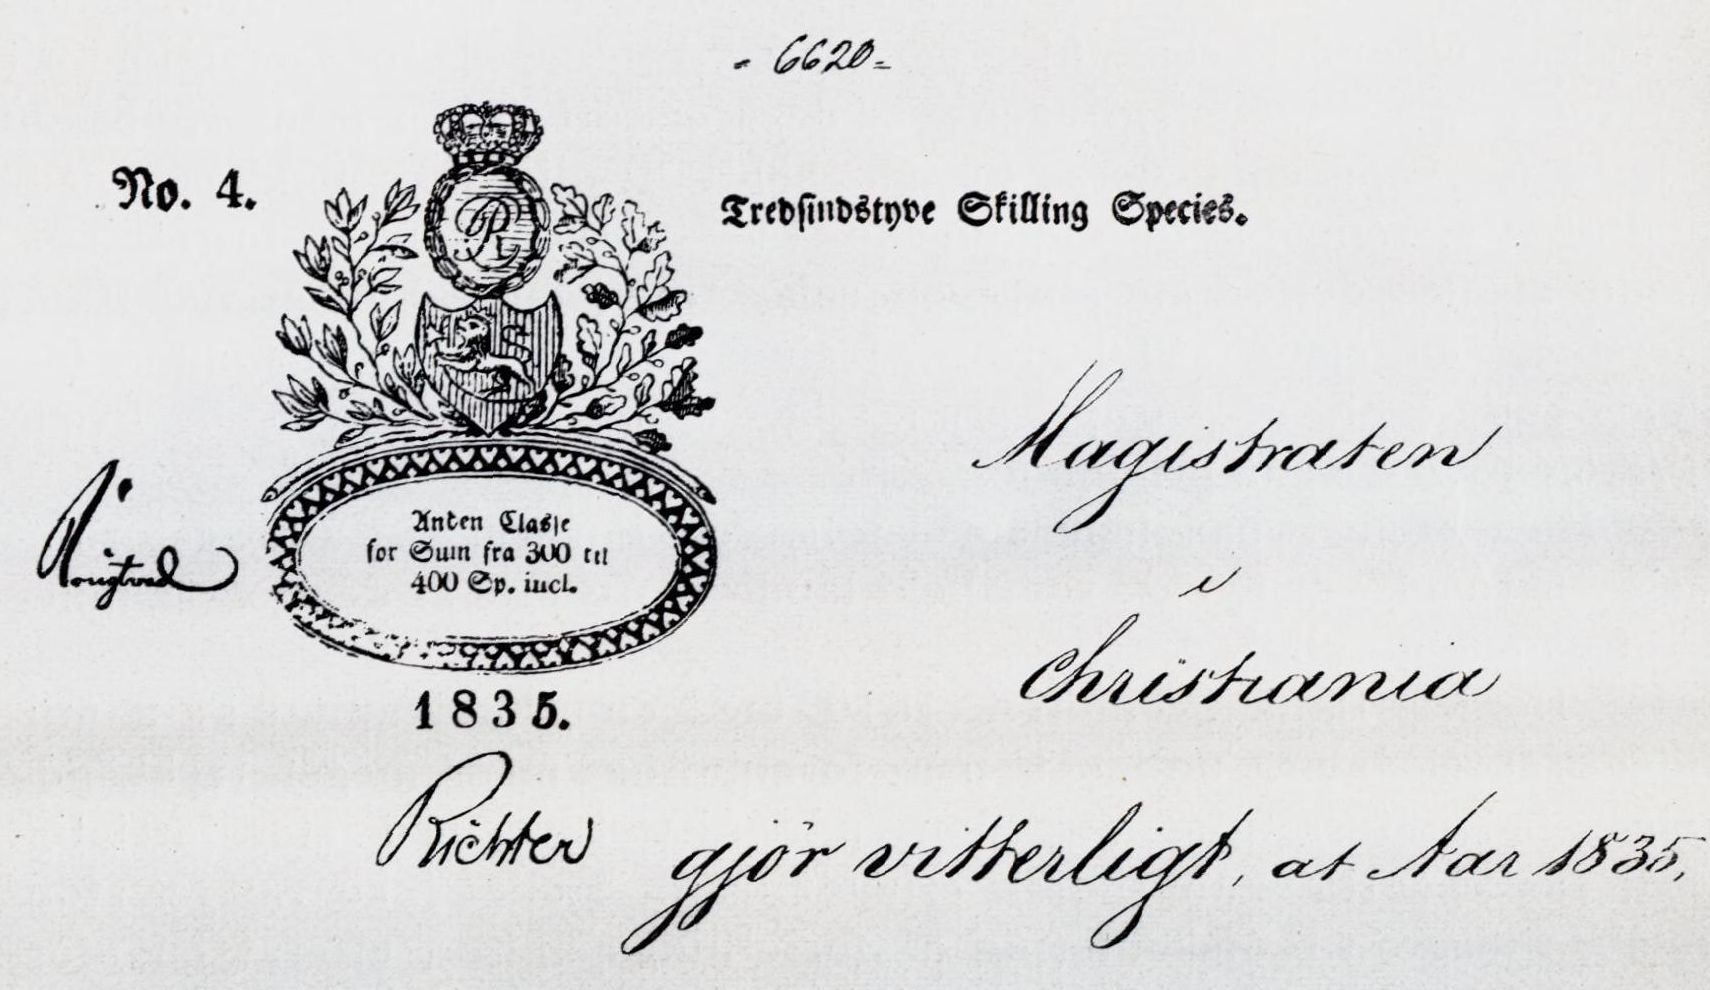 - 6620 -
No. 4.
Tredsindstyve Skilling Species.
Anden Classe
for Sum fra 300 til
400 Sp. incl.
1835.
Magistraten
i
Christiania
Richter
gjör vitterligt, at Aar 1835,